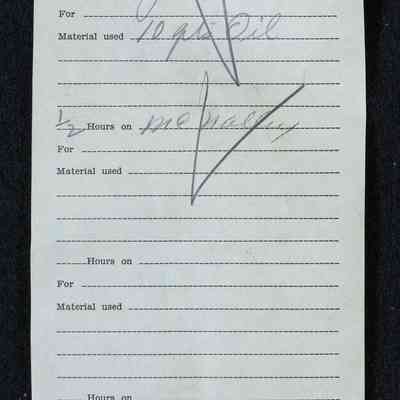 For
Material used 10 qts Oil
1/2 Hours on McNalley
For
Material used
Hours on
For
Material used
Hours on